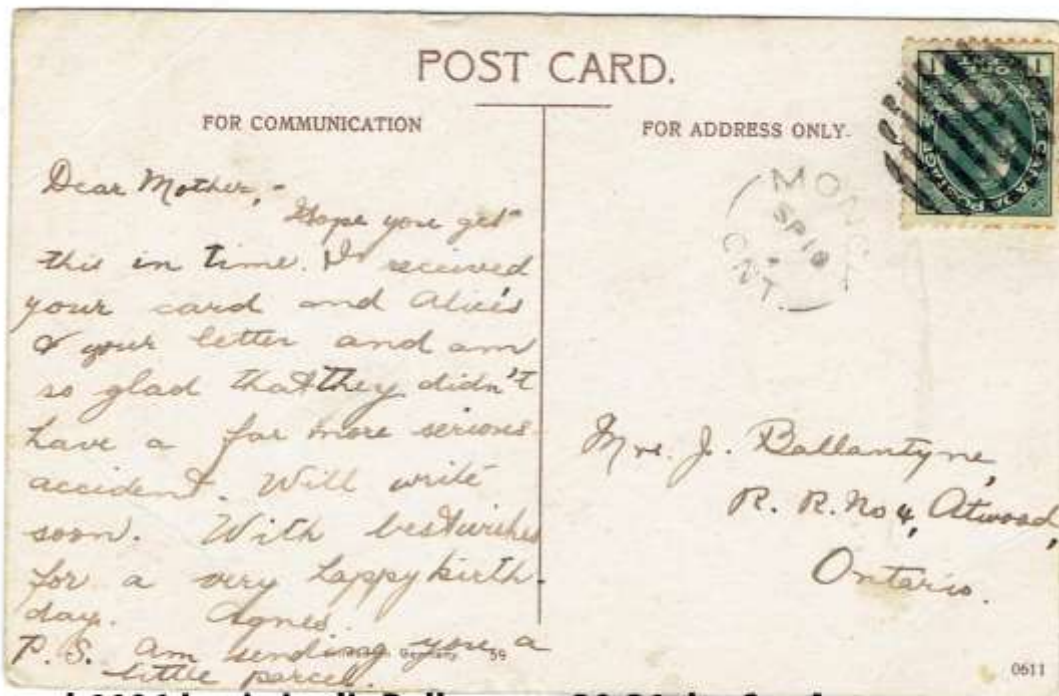 POST CARD.
FOR COMMUNICATION
Dear Mother,-
Hope you get
this in time. I received
your card and Alice's
& your letter and am
so glad that they didn't
have a far more serious
accident. Will write
soon. With best wishes
for a very happy birth-
day. Agnes.
P. S. Am sending you a
little parcel.
59
FOR ADDRESS ONLY.
1 ONE CENT 1
CANADA POSTAGE
SP 18
ONT.
Mrs. J. Ballantyne,
R. R. No 4, Atwood,
Ontario.
0611